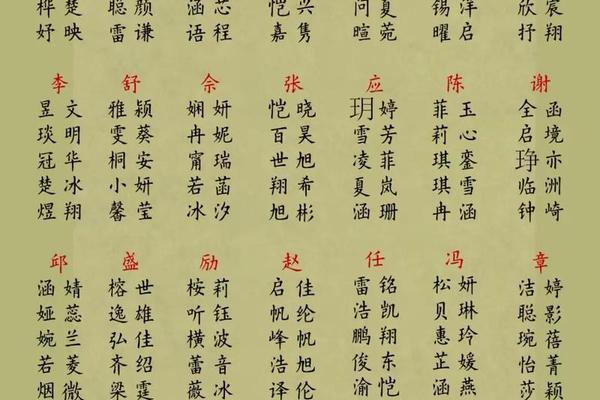 桦楚 聪颜 涵芯 恺兴 问夏 锡洋 欣宸
妤映 雷谦 语程 嘉隽 暄菀 曜启 抒翔
李 舒 佘 张 应 陈 谢
昱文 雅颖 娴妍 恺晓 玥婷 菲玉 全函
琰明 雯葵 冉妮 百昊 雪芳 莉心 启境
冠华 桐安 甯瑞 世旭 凌菲 琪銮 琤亦
楚冰 小妍 若菡 翔希 夏岚 琪雪 临洲
煜翔 馨莹 冰汐 旭彬 涵珊 冉涵 钟崎
邱 盛 励 赵 任 冯 章
涵婧 榕世 桉莉 启佳 雷铭 松妍 洁婷
娅蕊 逸雄 听钰 帆纶 浩凯 贝琳 聪影
婉兰 弘佳 横波 峰帆 鹏翔 惠玲 琬蓓
若菱 齐绍 蕾音 浩旭 俊东 芷媛 怡菁
烟微 梁霆 薇冰 译伦 渝恺 涵燕 莎颖